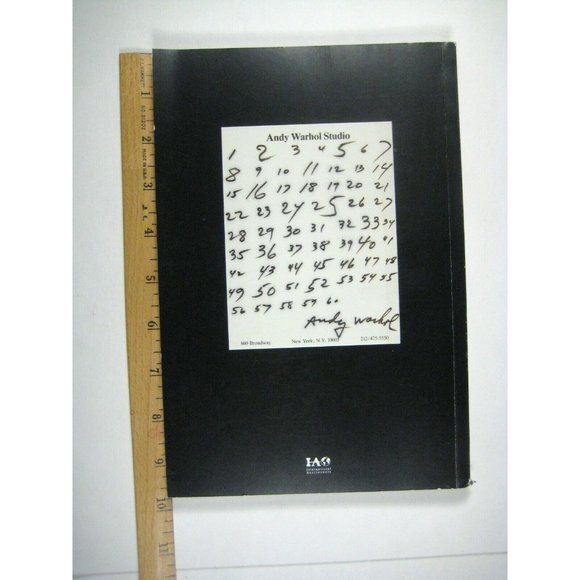 Andy Warhol Studio
1 2 3 4 5 6 7
8 9 10 11 12 13 14
15 16 17 18 19 20 21
22 23 24 25 26 27
28 29 30 31 32 33 34
35 36 37 38 39 40 41
42 43 44 45 46 47 48
49 50 51 52 53 54 55
56 57 58 59 60
Andy Warhol
860 Broadway New York, N.Y. 10003 212/475-5550
IAO
International
1 2 3 4 5 6 7 8 9 10 11